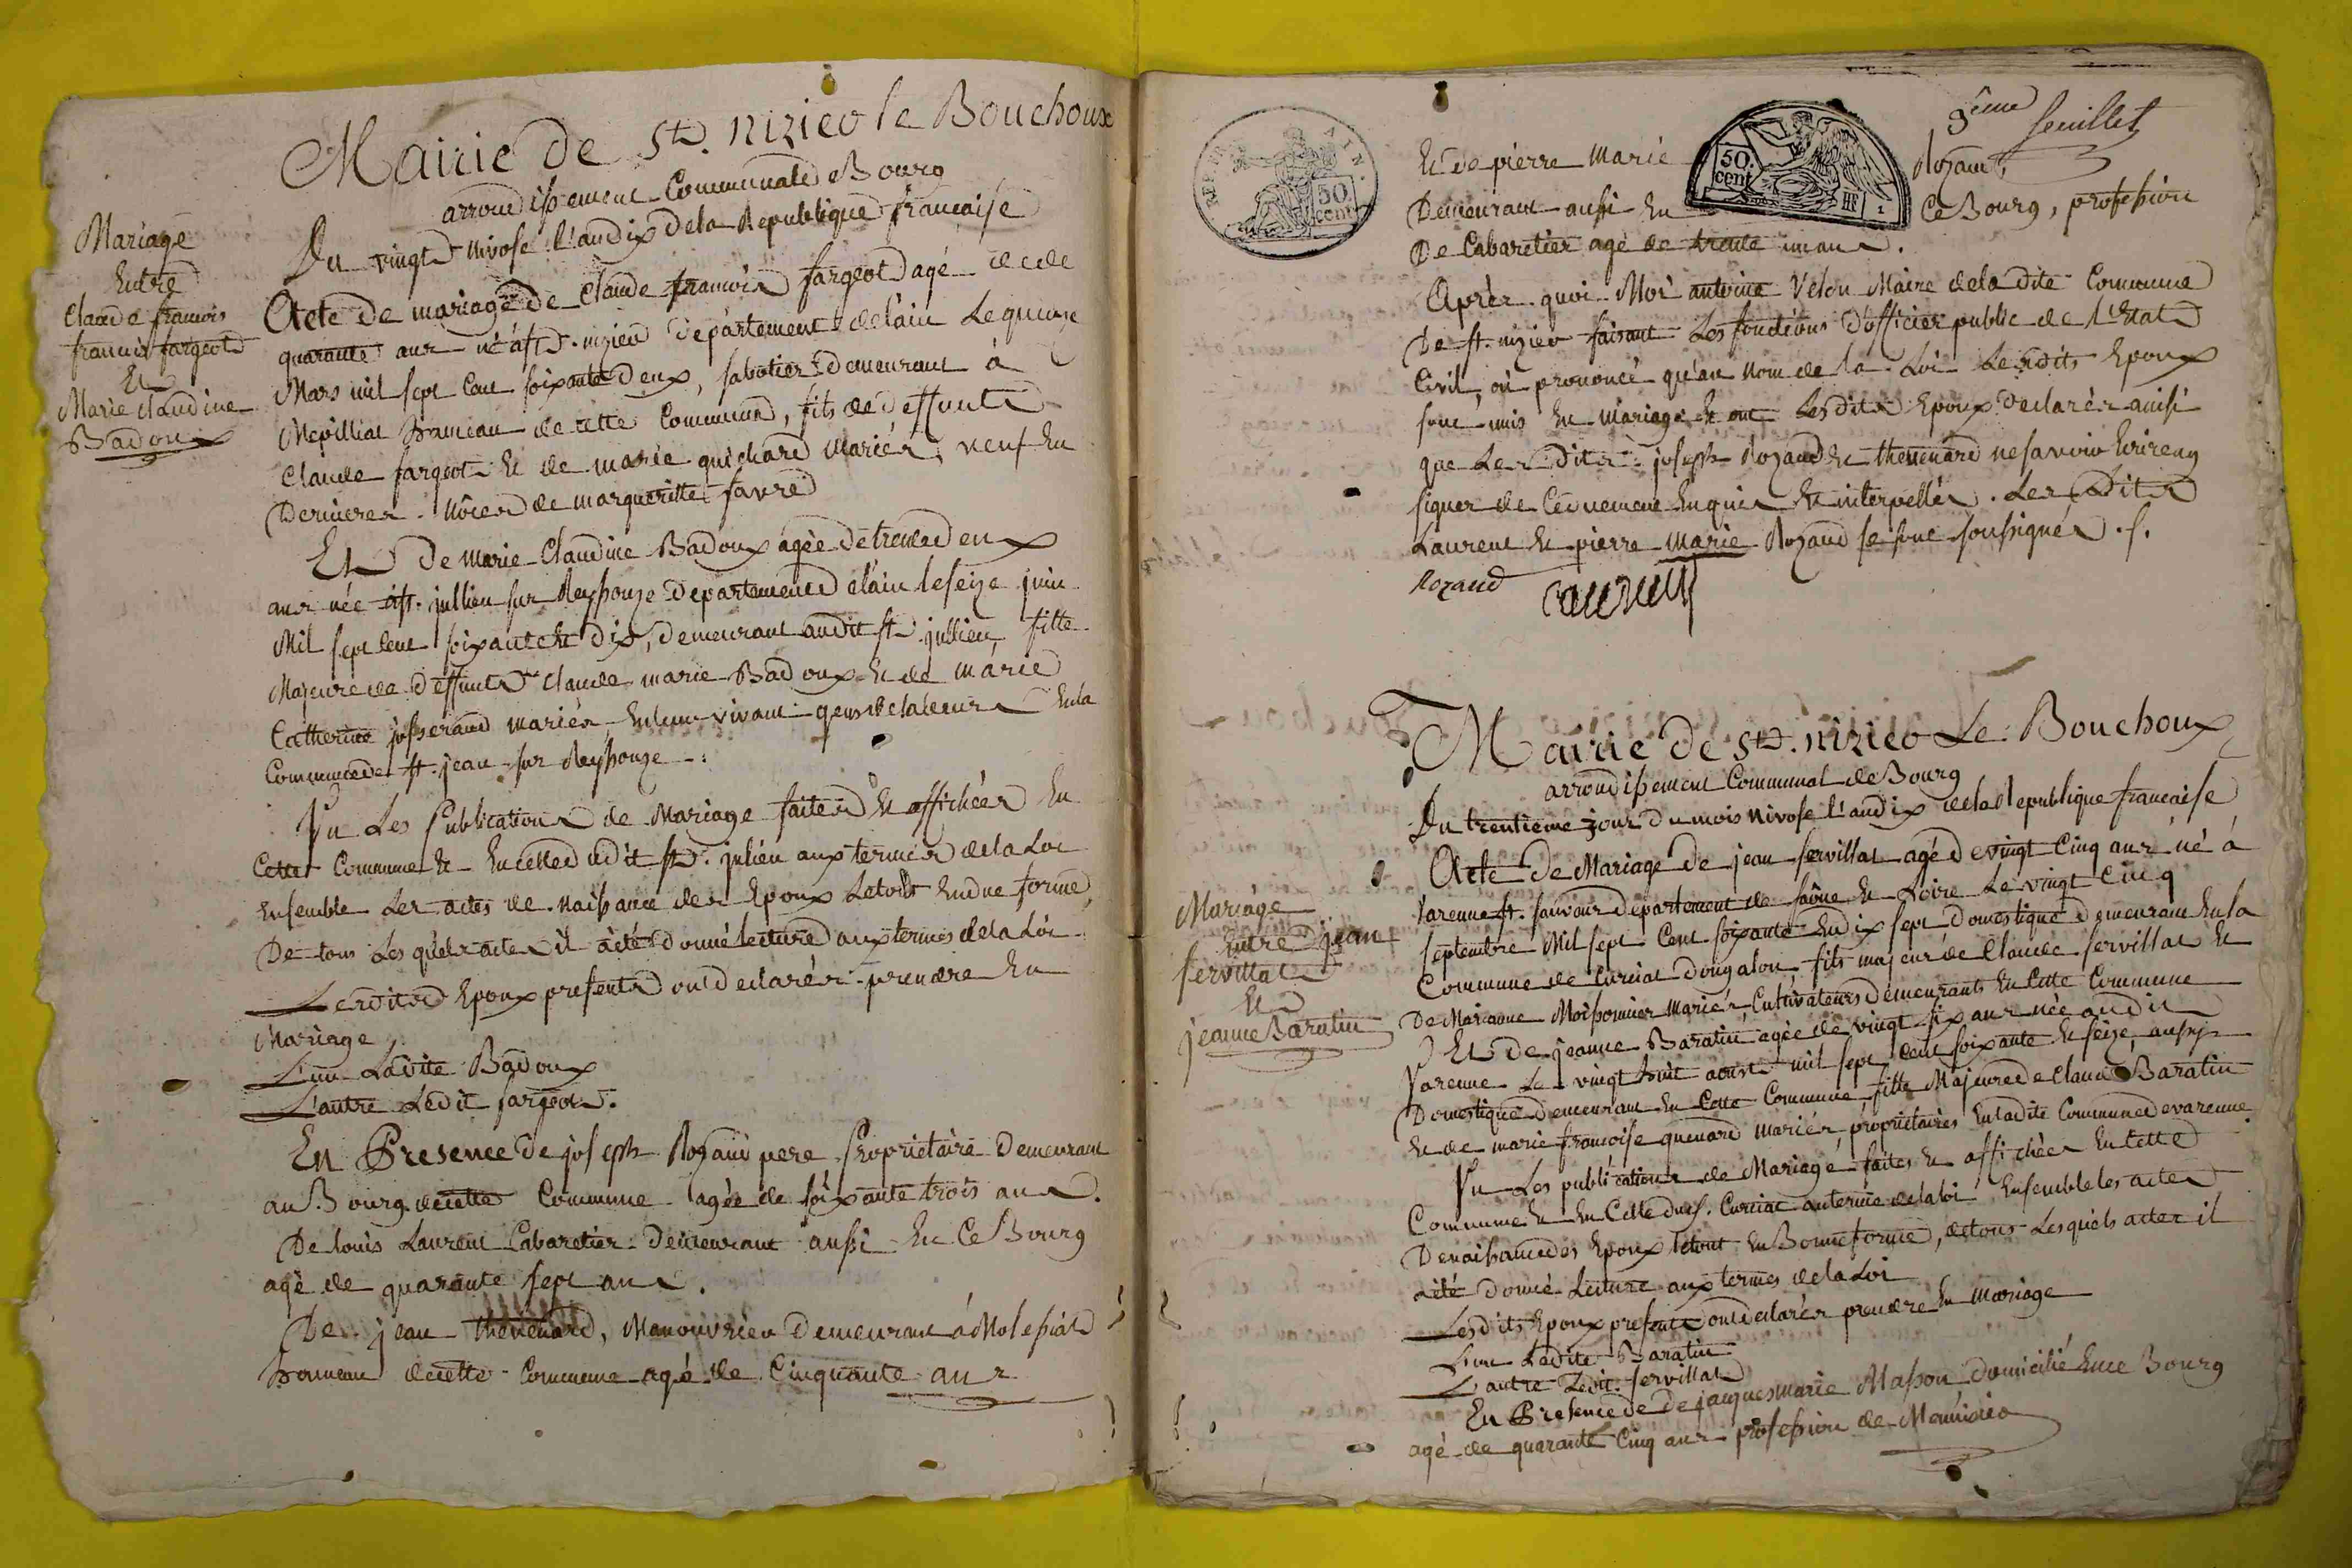 Mairie de St. nizier le Bouchoux
arrondissement Communal de Bourg
Du vingt nivose l'an dix de la Republique francaise
Mariage
Entre
Claude francois
francois fargeot
Et
Marie Claudine
Badoux
Acte de mariage de Claude francois fargeot agé de
quarante ans né à St. nizier departement de l'ain le quinze
Mars mil sept Cent soixante deux, sabotier demeurant à
hameau de cette Commune, fils de deffunts
Claude fargeot Et de marie guichard mariés, veuf En
Dernieres nôces de margueritte favre
Et De Marie Claudine Badoux agée de trente deux
ans née à St. jullien sur Reyssouze departement de l'ain le seize juin
Mil sept Cent soixante Et dix, demeurant audit St. jullien, fille
Majeure de deffunts Claude marie Badoux Et de marie
Catherine josserand mariés En leur vivant gens de labeurs En la
Commune de St. jean sur Reyssouze
Vu Les Publications de Mariage faites Et affichées En
Cette Commune Et En celle dudit St. julien aux termes de la Loi
Ensemble Les actes de Naissance des Epoux Le tout En due forme,
De tous Les quels actes il a été donné lecture aux termes de la Loi
Lesdits Epoux presents ont declarés prendre En
Mariage
L'un Ladite Badoux
L'autre Ledit fargeot.
En Presence de joseph Rozand pere Proprietaire Demeurant
au Bourg de cette Commune agée de soixante trois ans.
De louis Laurent Cabaretier Demeurant aussi En Ce Bourg
agé de quarante sept ans.
De jean thevenard, Manouvrier Demeurant à
hameau de cette Commune agé de Cinquante ans
9eme feuillet
REP. FRA. AIN.
50 cent
50. cent
HF 1
Et de pierre Marie Rozand,
Demeurant aussi En Ce Bourg, profession
De Cabaretier agé de trente un ans.
Après quoi Moi antoine Velon Maire de la dite Commune
De St. nizier faisant Les fonctions d'officier public de l'Etat
Civil, ai prononcé qu'au Nom de la Loi Lesdits Epoux
sont unis En mariage Et ont Lesdits Epoux declarés ainsi
que Lesdits joseph Rozand Et thevenard ne savoir Ecrire ny
signer de Ce duement Enquis Et interpellés. Lesdits
Laurent Et pierre Marie Rozand se sont soussignés.
Rozand Laurent
Mairie de St. nizier Le Bouchoux
arrondissement Communal de Bourg
Du trentieme jour du mois Nivose l'an dix de la Republique francaise
Mariage
Entre jean
servillat
Et
jeanne Baratin
Acte de Mariage de jean servillat agé de vingt Cinq ans né à
Varenne St. sauveur departement de saône Et Loire Le vingt Cinq
septembre Mil sept Cent soixante En dix sept Domestique demeurant En la
Commune de Curciat dongalon, fils majeur de Claude servillat Et
De Marianne Moissonnier Mariés, Cultivateurs Demeurants En Cette Commune
Et De jeanne Baratin agée de vingt six ans née audit
Varenne Le vingt huit aoust mil sept Cent soixante Et seize, aussi
Domestique Demeurant En Cette Commune, fille Majeure de Claude Baratin
Et de marie francoise guenard mariés, proprietaires En ladite Commune de varenne
Vu Les publications de Mariage faites Et affichées En Cette
Commune Et En Celle Curciat au terme de la loi Ensemble les actes
De naissance des Epoux le tout En Bonne forme, de tous Lesquels actes il
a été donné Lecture aux termes de la Loi
Lesdits Epoux presents ont declarés prendre En mariage
L'un Ladite Baratin
L'autre Ledit servillat
En Presence de De jacques marie Masson domicilié En ce Bourg
agé de quarante Cinq ans profession de Menuisier